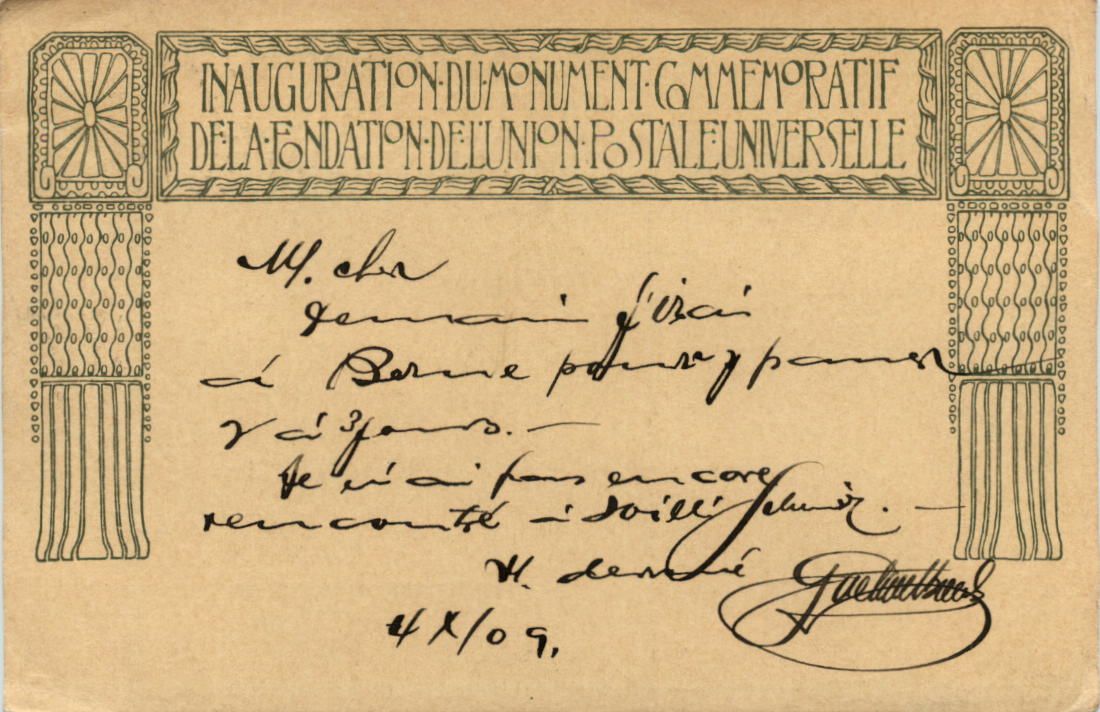 INAUGURATION·DU·MONUMENT·COMMEMORATIF
DE·LA·FONDATION·DE·L'UNION·POSTALE·UNIVERSELLE
M. cher
demain j'irai
à Berne pour y passer
2 à 3 jours. —
Je n'ai pas encore
rencontré
4 X/09.